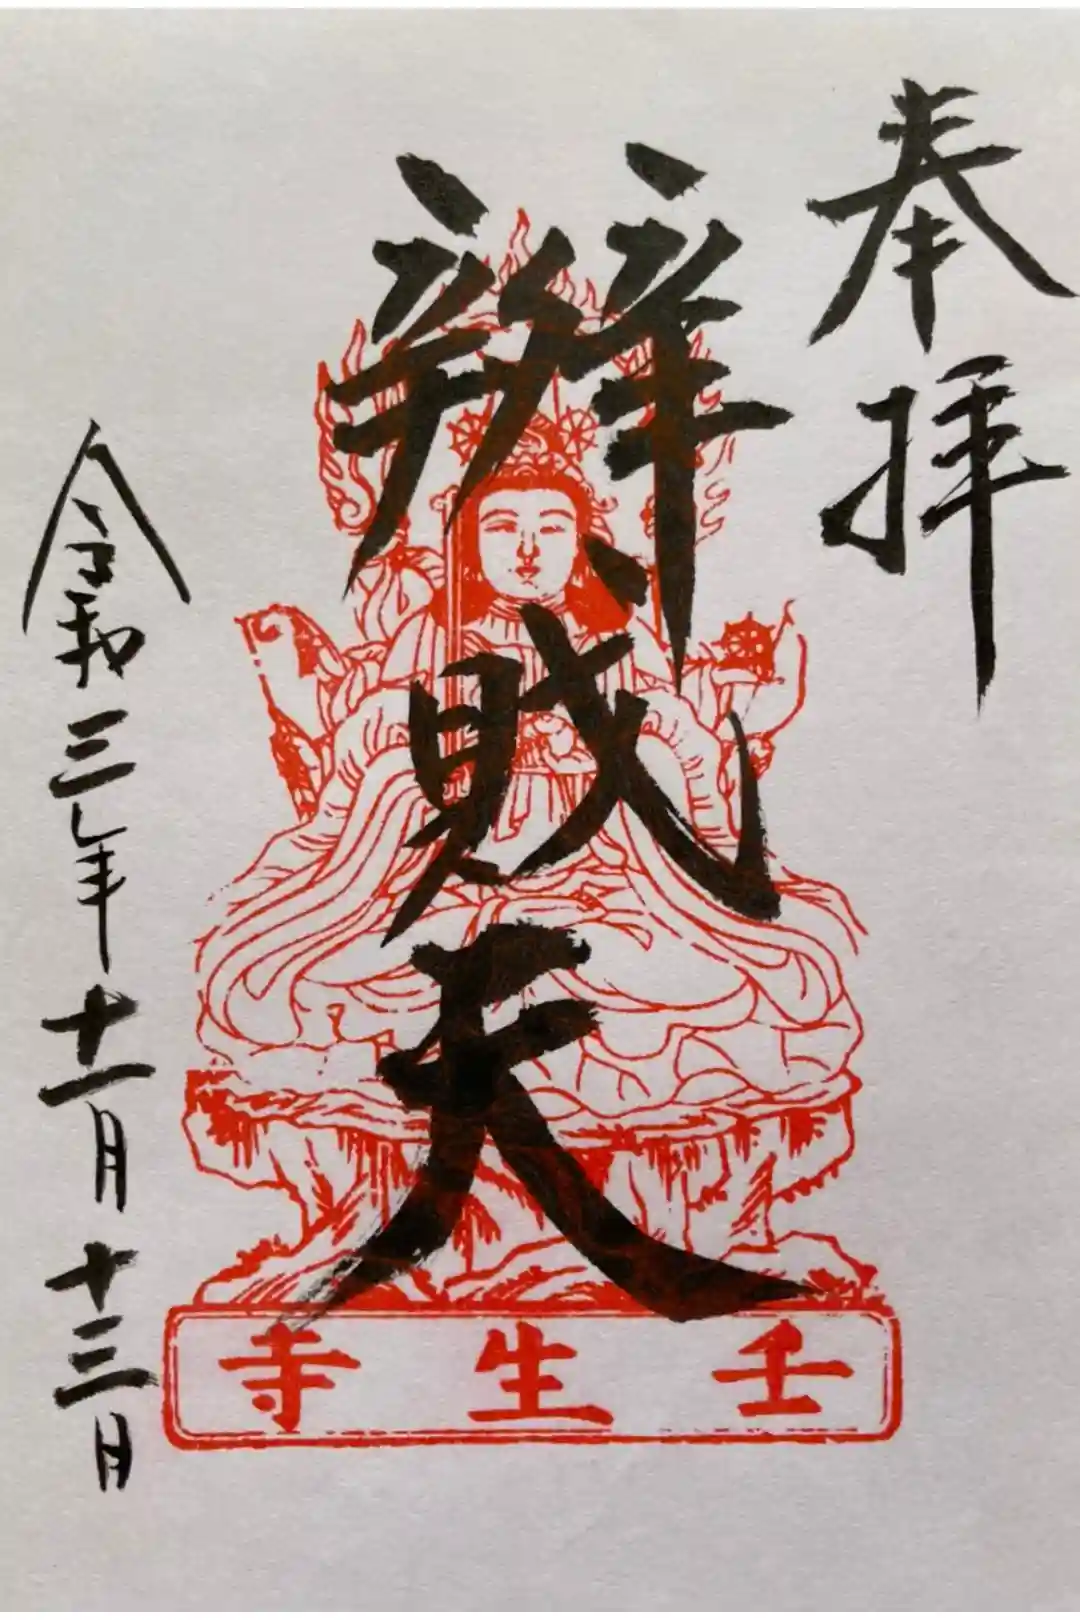 奉拝
辨財天
令和三年十一月十三日
壬生寺